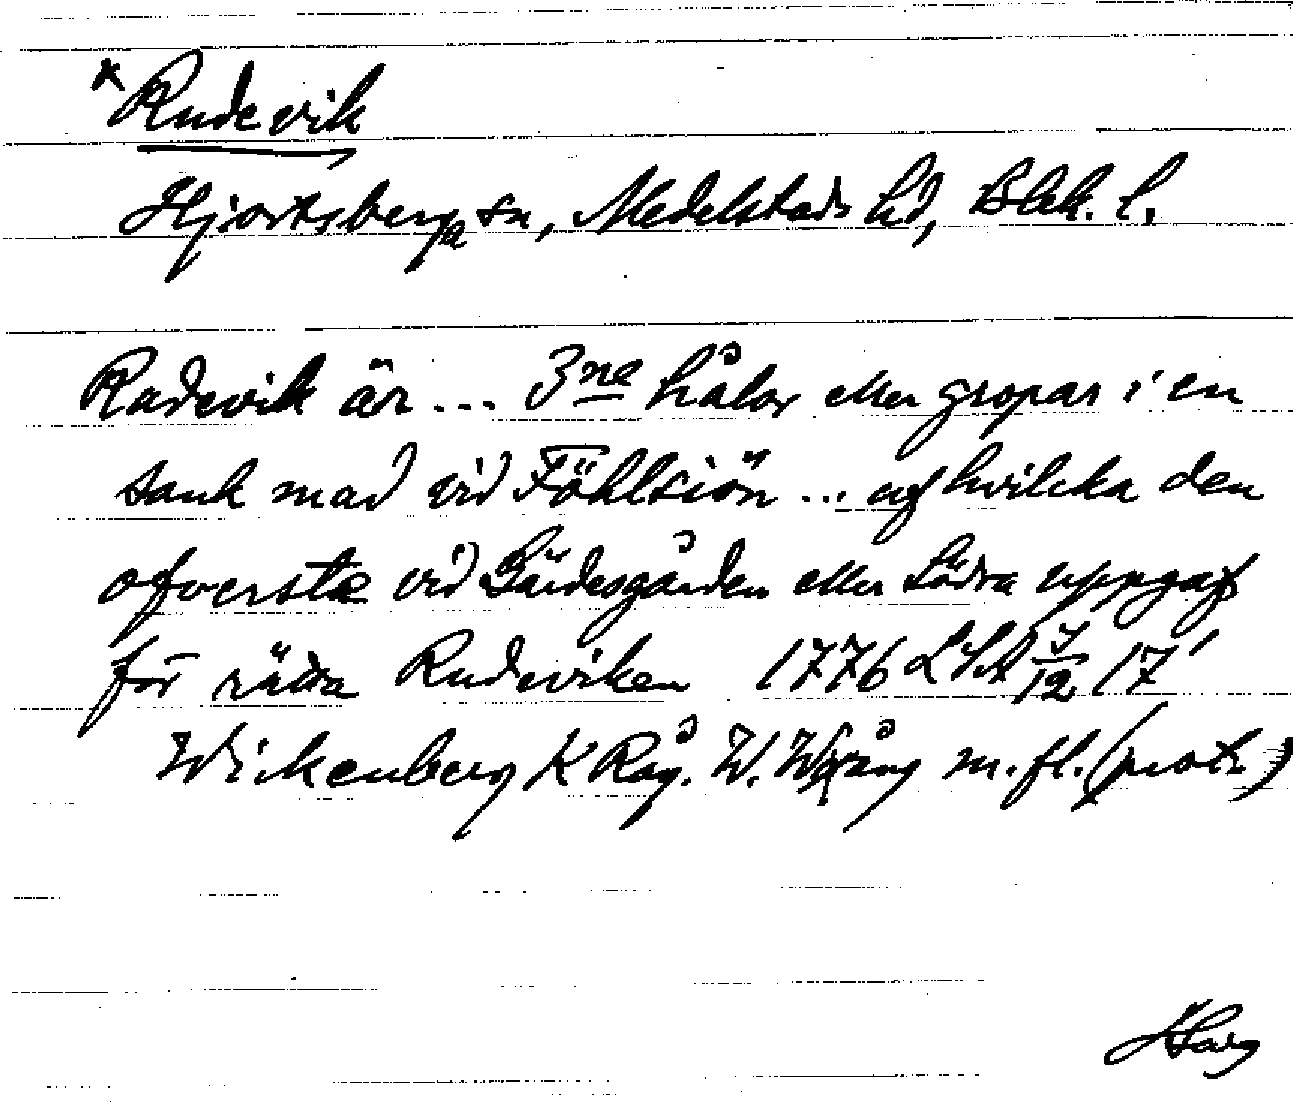 * Rudevik
Hjortsberga sn, Medelstads hd, Blek. l.
Rudevik är ... 3ne hålor eller gropar i en
sank mad vid Föhlsiön ... af hvilka den
ofversta vid Gärdesgården eller Södra uppgafs
för rätta Rudeviken 1776 LSA 12 17
Wickenberg K Råg. W. Wrång m.fl. (prot.)